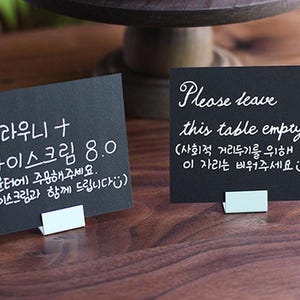 라우니 +
이스크림 8.0
터에 주문해주세요.
이스크림과 함께 드립니다
Please leave
this table empty
(사회적 거리두기를 위해
이 자리는 비워주세요